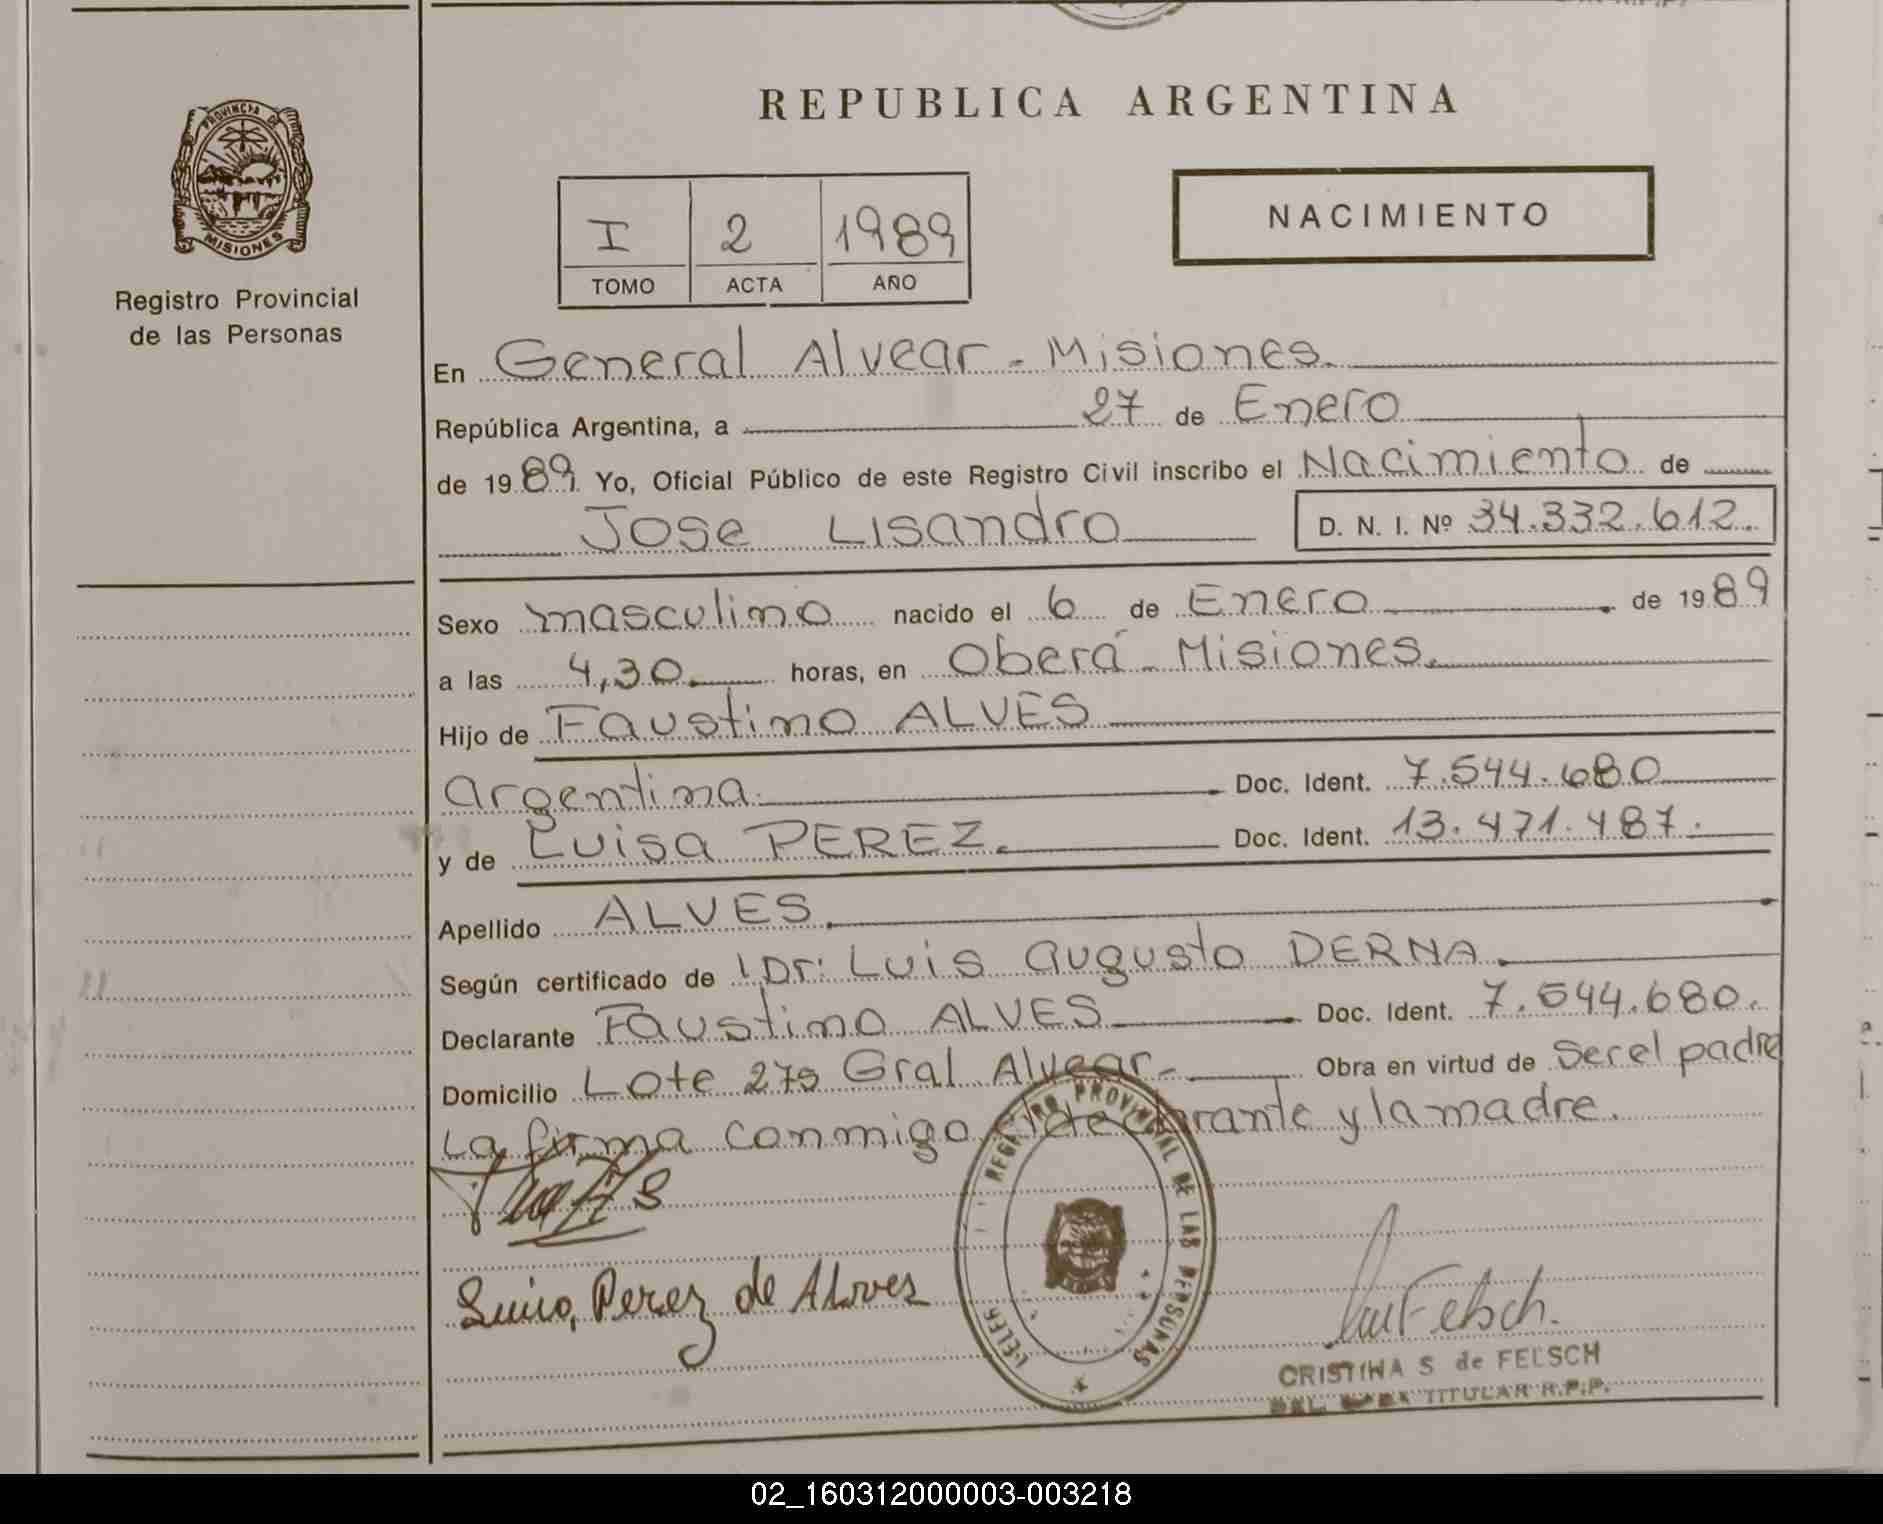 REPUBLICA ARGENTINA
PROVINCIA DE
MISIONES
Registro Provincial
de las Personas
I 2 1989
TOMO ACTA AÑO
NACIMIENTO
En General Alvear - Misiones.
República Argentina, a 27 de Enero
de 1989 Yo, Oficial Público de este Registro Civil inscribo el Nacimiento de
Jose Lisandro D. N. I. Nº 34.332.612.
Sexo masculino nacido el 6 de Enero de 1989
a las 4,30 horas, en Oberá - Misiones.
Hijo de Faustino ALVES
argentina. Doc. Ident. 7.544.680
y de Luisa PEREZ. Doc. Ident. 13.471.487.
Apellido ALVES.
Según certificado de Dr: Luis augusto DERNA.
Declarante Faustino ALVES Doc. Ident. 7.544.680.
Domicilio Lote 275 Gral Alvear - Obra en virtud de ser el padre
La firma conmigo el declarante y la madre.
REGISTRO PROVINCIAL DE LAS PERSONAS
Perez de Alves
Felsch.
CRISTINA S de FELSCH
TITULAR R.P.P.
02_160312000003-003218